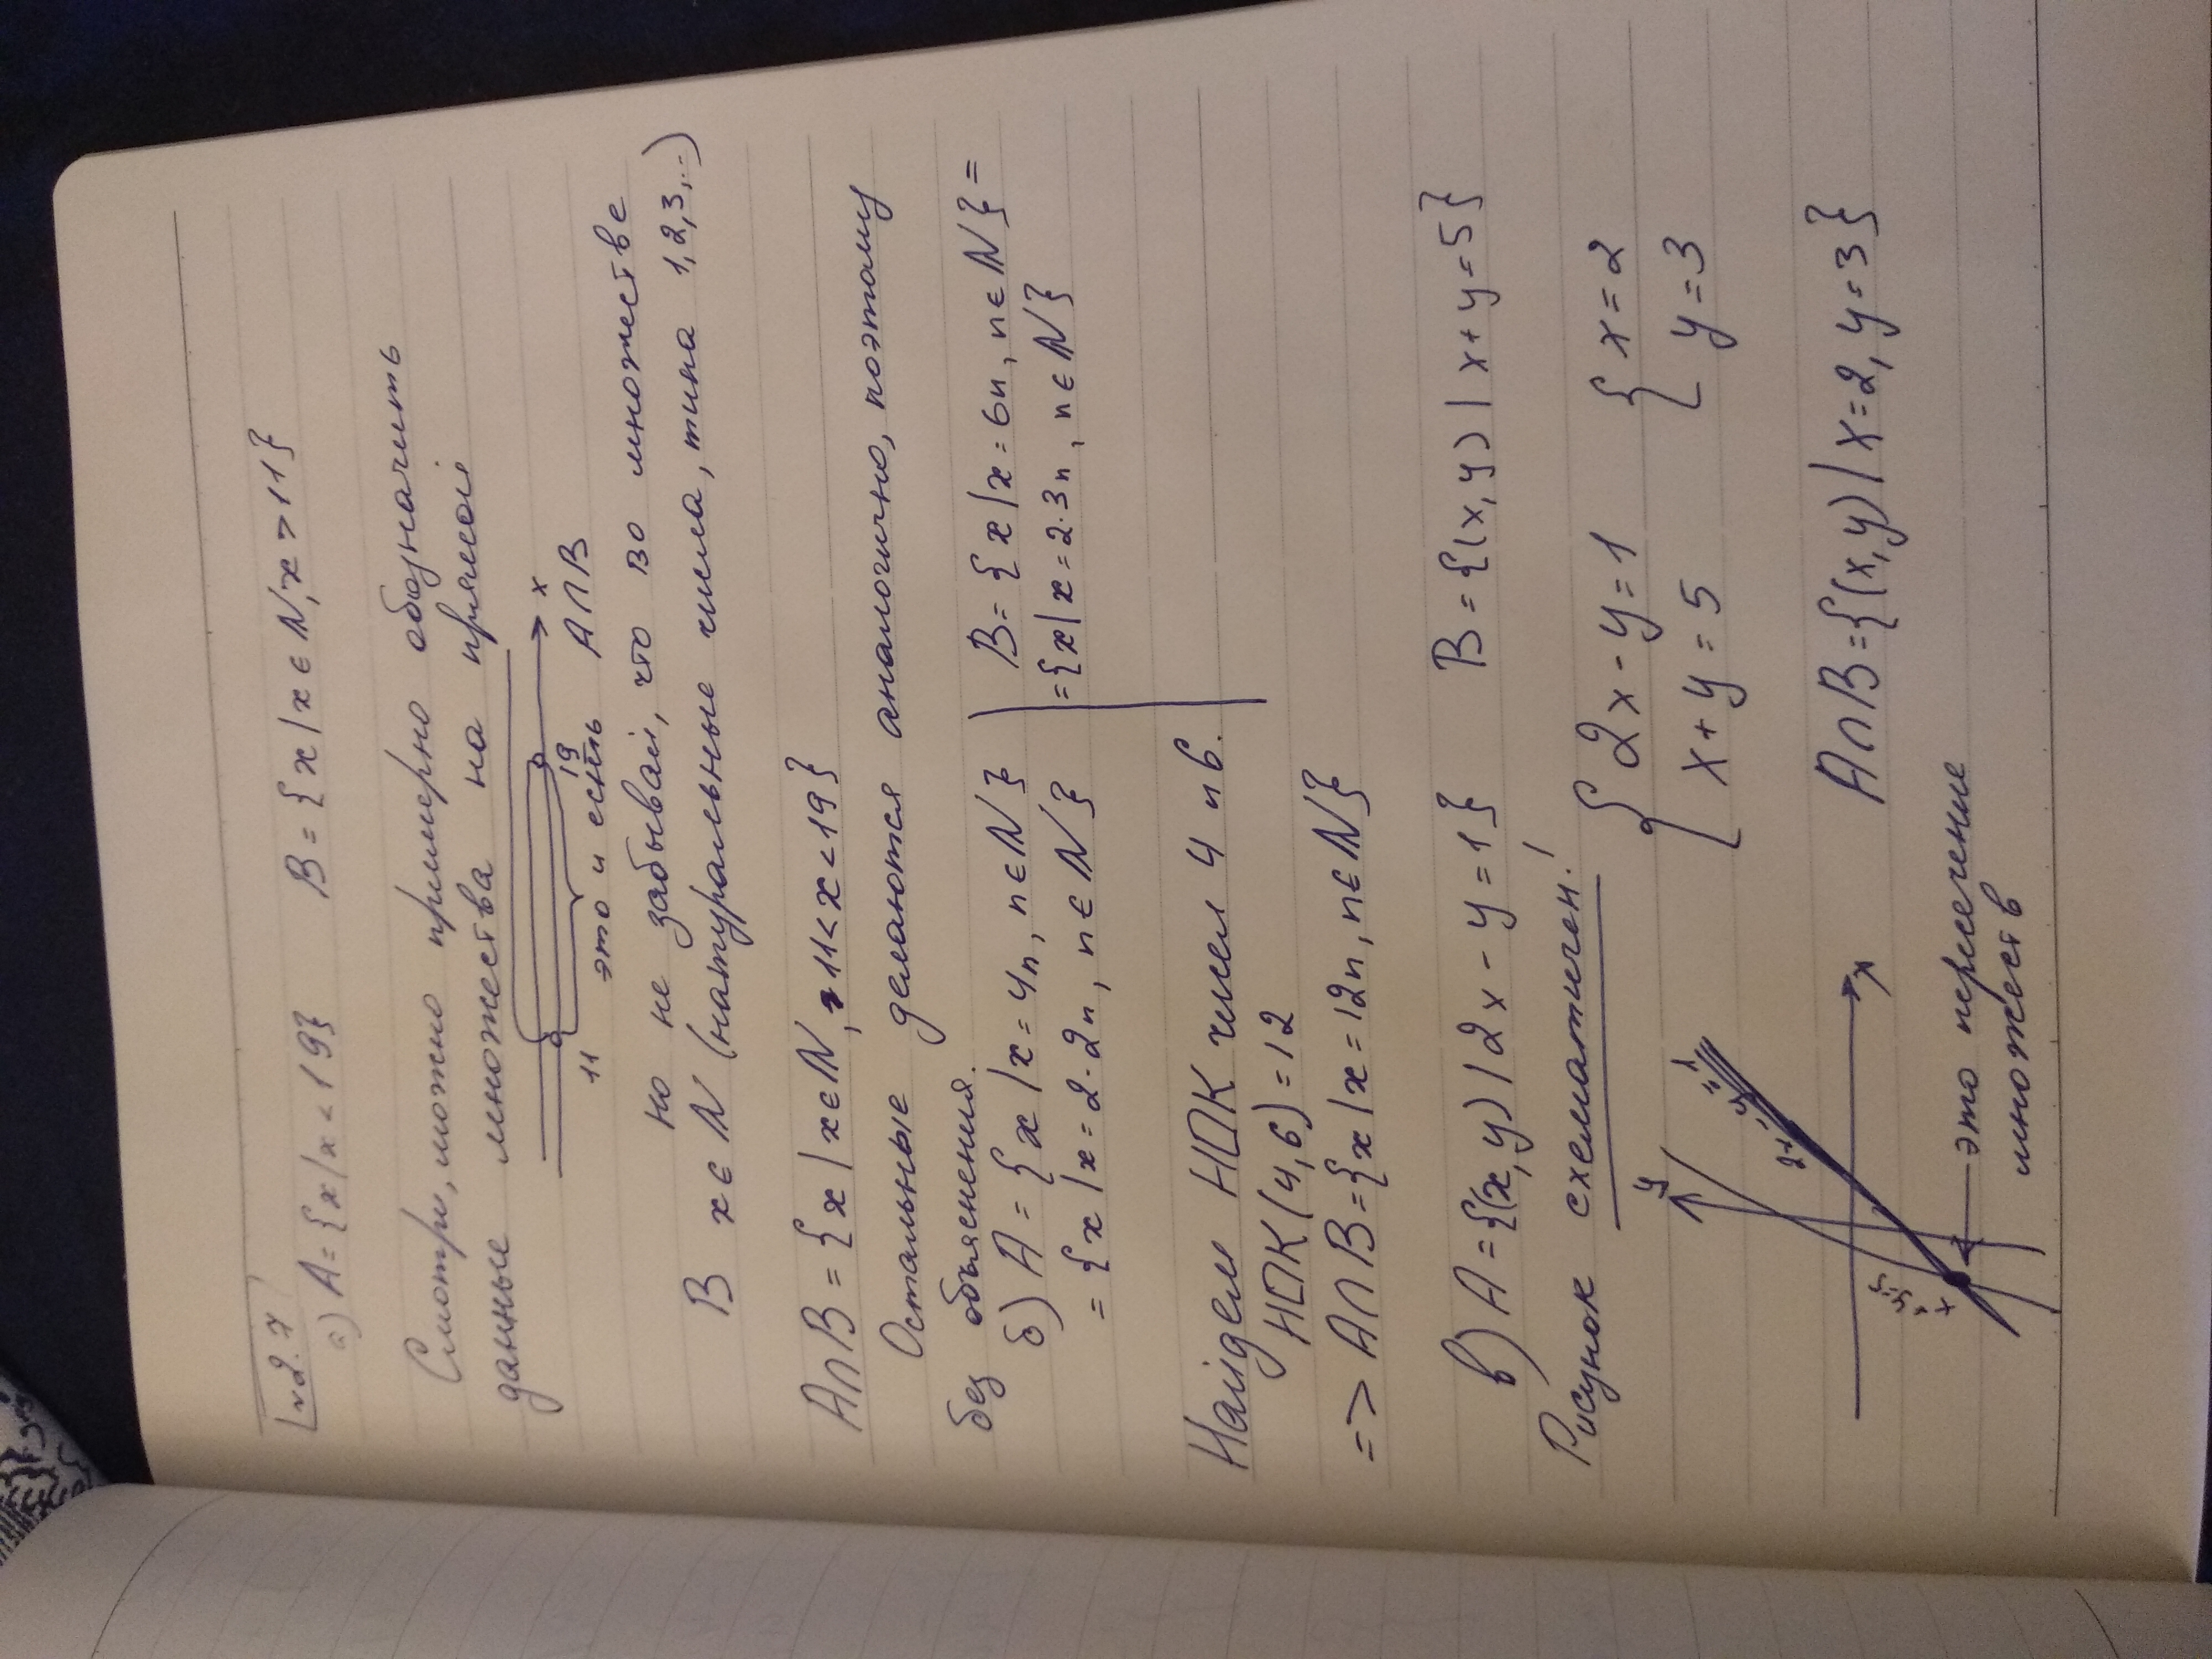 №2.7
а) A = {x | x < 19} B = {x | x ∈ N, x > 11}
Смотри, можно примерно обозначить
данные множества на прямой
x
11 19
это и есть A∩B
но не забывай, что во множестве
B x ∈ N (натуральные числа, типа 1,2,3,..)
A∩B = {x | x ∈ N, 11 < x < 19}
Остальные делаются аналогично, поэтому
без объяснения.
б) A = {x | x = 4n, n ∈ N} B = {x | x = 6n, n ∈ N} =
= {x | x = 2·2n, n ∈ N} = {x | x = 2·3n, n ∈ N}
Найдем НОК чисел 4 и 6.
НОК(4,6) = 12
=> A∩B = {x | x = 12n, n ∈ N}
в) A = {(x,y) | 2x - y = 1} B = {(x,y) | x + y = 5}
Рисунок схематичен!
{ 2x - y = 1 { x = 2
x + y = 5 y = 3
y
x
A∩B = {(x,y) | x = 2, y = 3}
это пересечение
множеств